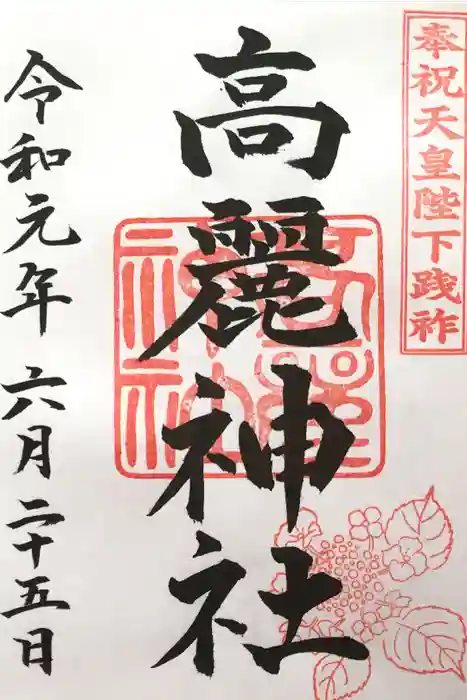 奉祝天皇陛下践祚
高麗神社
令和元年六月二十五日